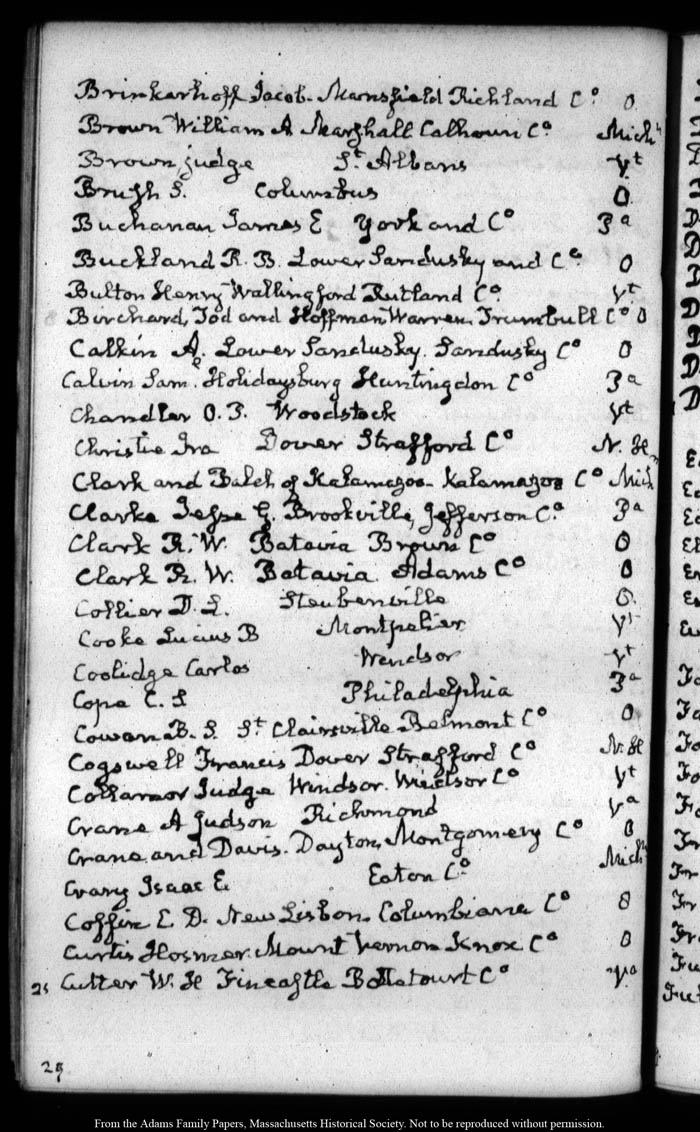 Brinkerhoff Jacob. Mansfield Richland Co. O.
Brown William A Marshall Calhoun Co. Mich
Brown, judge St Albans Vt
Brush S. Columbus O.
Buchanan James E York and Co Pa
Buckland R. B. Lower Sandusky and Co. O
Bulton Henry Wallingford Rutland Co. Vt.
Birchard, Tod and Hoffman Warren, Trumbull Co O
Calkin A. Lower Sandusky. Sandusky Co O
Calvin Saml. Holidaysburg Huntingdon Co Pa
Chandler O. P. Woodstock Vt
Christie Ira Dover Strafford Co N. H.
Clark and Balch of Kalamazoo. Kalamazoo Co Mich
Clarke Jesse G. Brookville, Jefferson Co. Pa
Clark R. W. Batavia Brown Co O
Clark R. W. Batavia Adams Co O
Collier D. L. Steubenville O.
Cooke Lucius B Montpelier Vt
Coolidge Carlos Windsor Vt
Cope C. S Philadelphia Pa
Cowan B. S. St Clairsville Belmont Co O
Cogswell Francis Dover Strafford Co N. H
Collamor Judge Windsor. Windsor Co Vt
Crane A Judson Richmond Va
Crane and Davis. Dayton, Montgomery Co O
Crary Isaac E. Eaton Co. Mich
Coffin E. D. New Lisbon. Columbiana Co O
Curtis Hosmer. Mount Vernon Knox Co O
25 Cutter W. H Fincastle Bottetourt Co Va
25
From the Adams Family Papers, Massachusetts Historical Society. Not to be reproduced without permission.